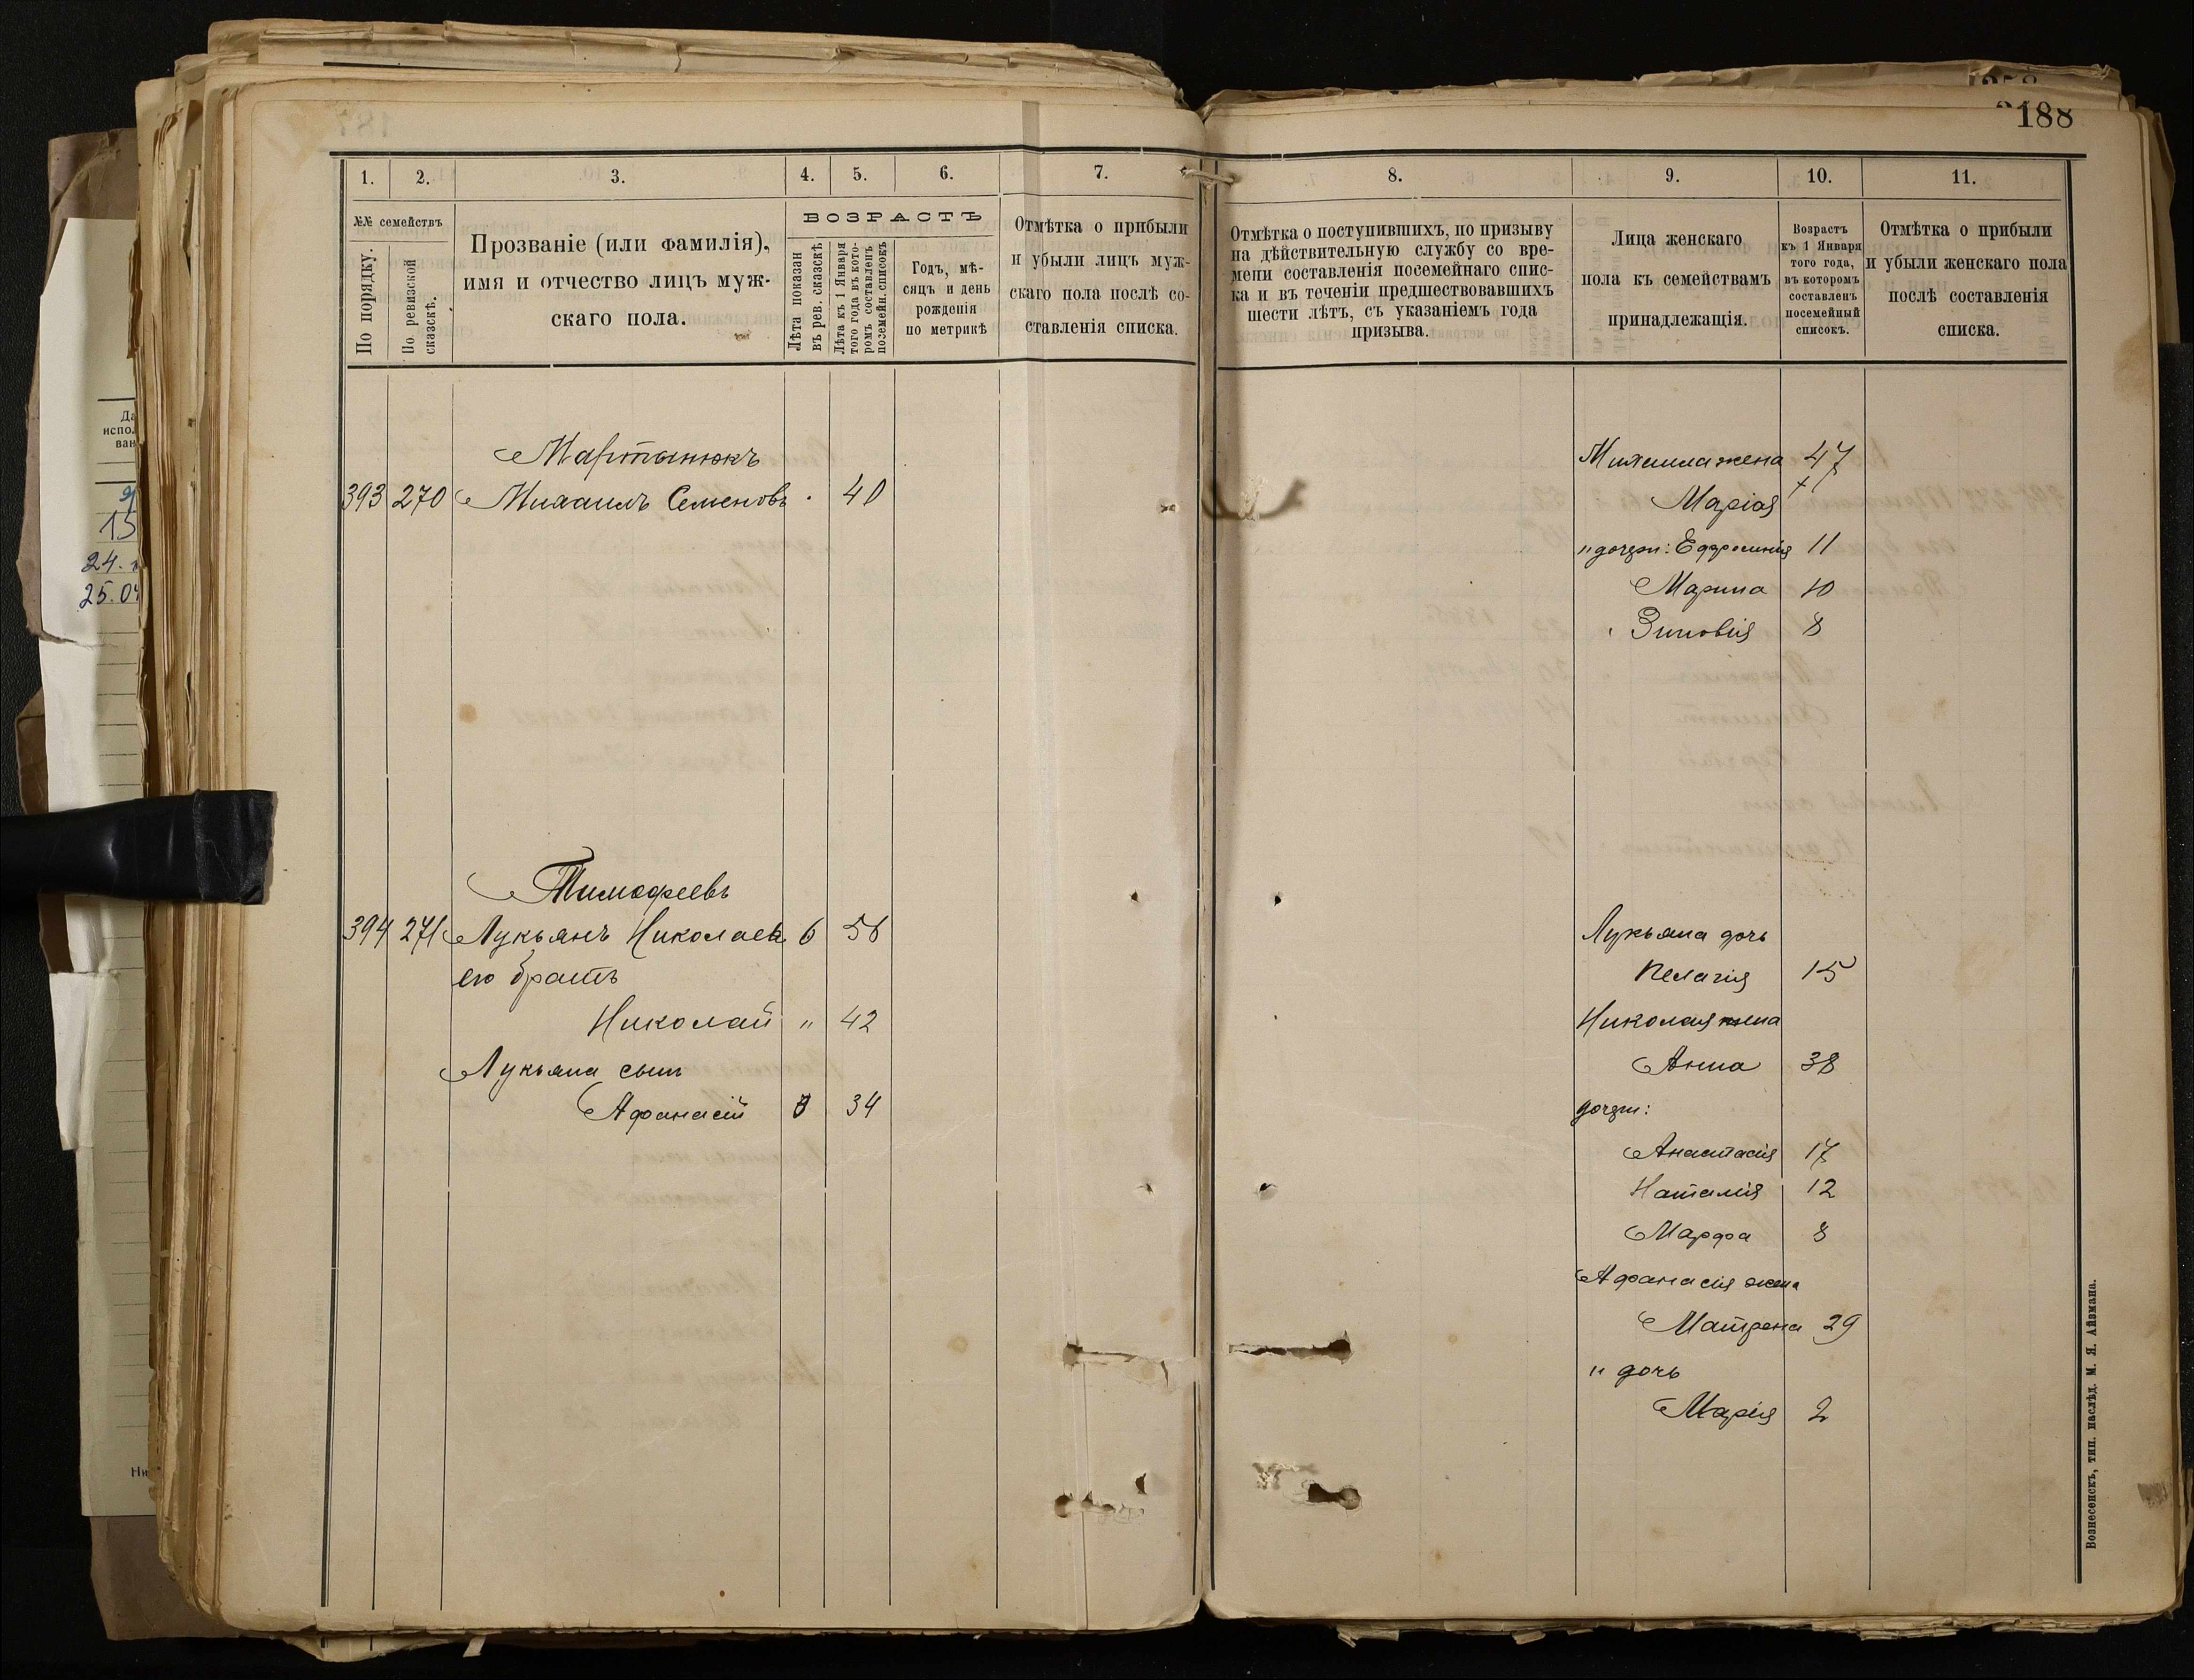 188
1.
2.
3.
4.
5.
6.
7.
№№ семействъ
По порядку.
По ревизской сказскѣ.
Прозваніе (или фамилія),
имя и отчество лицъ муж-
скаго пола.
ВОЗРАСТЪ
Лѣта показан
въ рев. сказскѣ
Лѣта къ 1 Января
того года въ кото-
ромъ составленъ
посемейн. списокъ
Годъ, мѣ-
сяцъ и день
рожденія
по метрикѣ
Отмѣтка о прибыли
и убыли лицъ муж-
скаго пола послѣ со-
ставленія списка.
Мартынюкъ
393 270 Михаилъ Семеновъ 40
Тимофеевъ
394 271 Лукьянъ Николаев 6 56
его братъ
Николай " 42
Лукьяна сынъ
Афанасій 34
8.
9.
10.
11.
Отмѣтка о поступившихъ, по призыву
на дѣйствительную службу со вре-
мени составленія посемейнаго спис-
ка и въ теченіи предшествовавшихъ
шести лѣтъ, съ указаніемъ года
призыва.
Лица женскаго
пола къ семействамъ
принадлежащія.
Возрастъ
къ 1 Января
того года,
въ которомъ
составленъ
посемейный
списокъ.
Отмѣтка о прибыли
и убыли женскаго пола
послѣ составленія
списка.
Михаила жена 47
Марія
" дочери: Ефросинія 11
Марина 10
Зиновія 8
Лукьяна дочь
Пелагія 15
Николая жена
Анна 38
дочери:
Анастасія 17
Наталія 12
Марфа 8
Афанасія жена
Матрена 29
" дочь
Марія 2
Вознесенскъ, тип. наслѣд. М. Я. Айзмана.
Да
испол
ван
15
24.
25.04